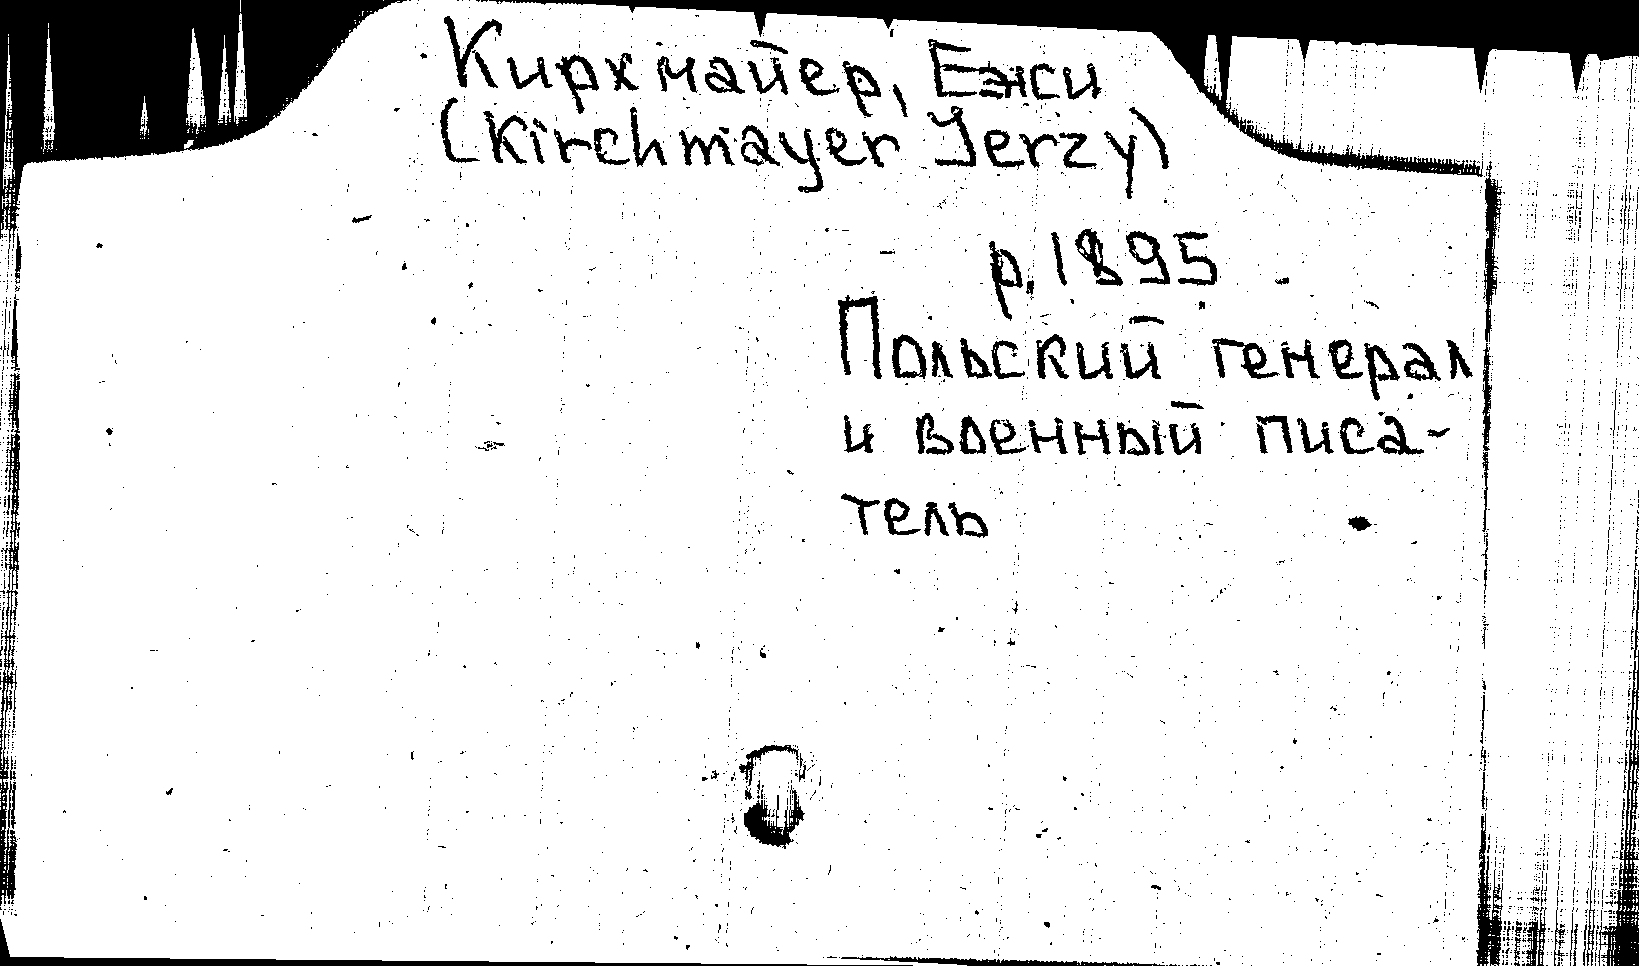 Кирхмайер, Ежи
(Kirchmayer Jerzy)
р. 1895
Польский генерал
и военный писа-
тель